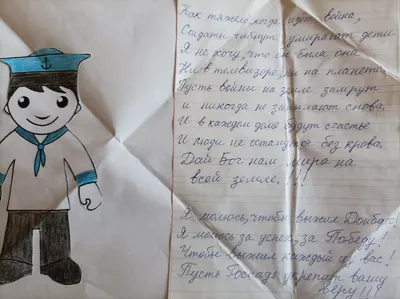 Как тяжело, когда идёт война,
Солдаты гибнут, умирают дети
Я не хочу, что бы была она
Ни в телевизоре, ни на планете.
Пусть войны на земле замрут
и никогда не запылают снова.
И в каждом доме будут счастье
И люди не останутся без крова.
Дай Бог нам мира на
всей земле. !!!
Я молюсь, чтобы выжил Донбасс!
Я молюсь за успех, за Победу!
Чтобы выжил каждый из вас!
Пусть Господь укрепит вашу
веру!!!